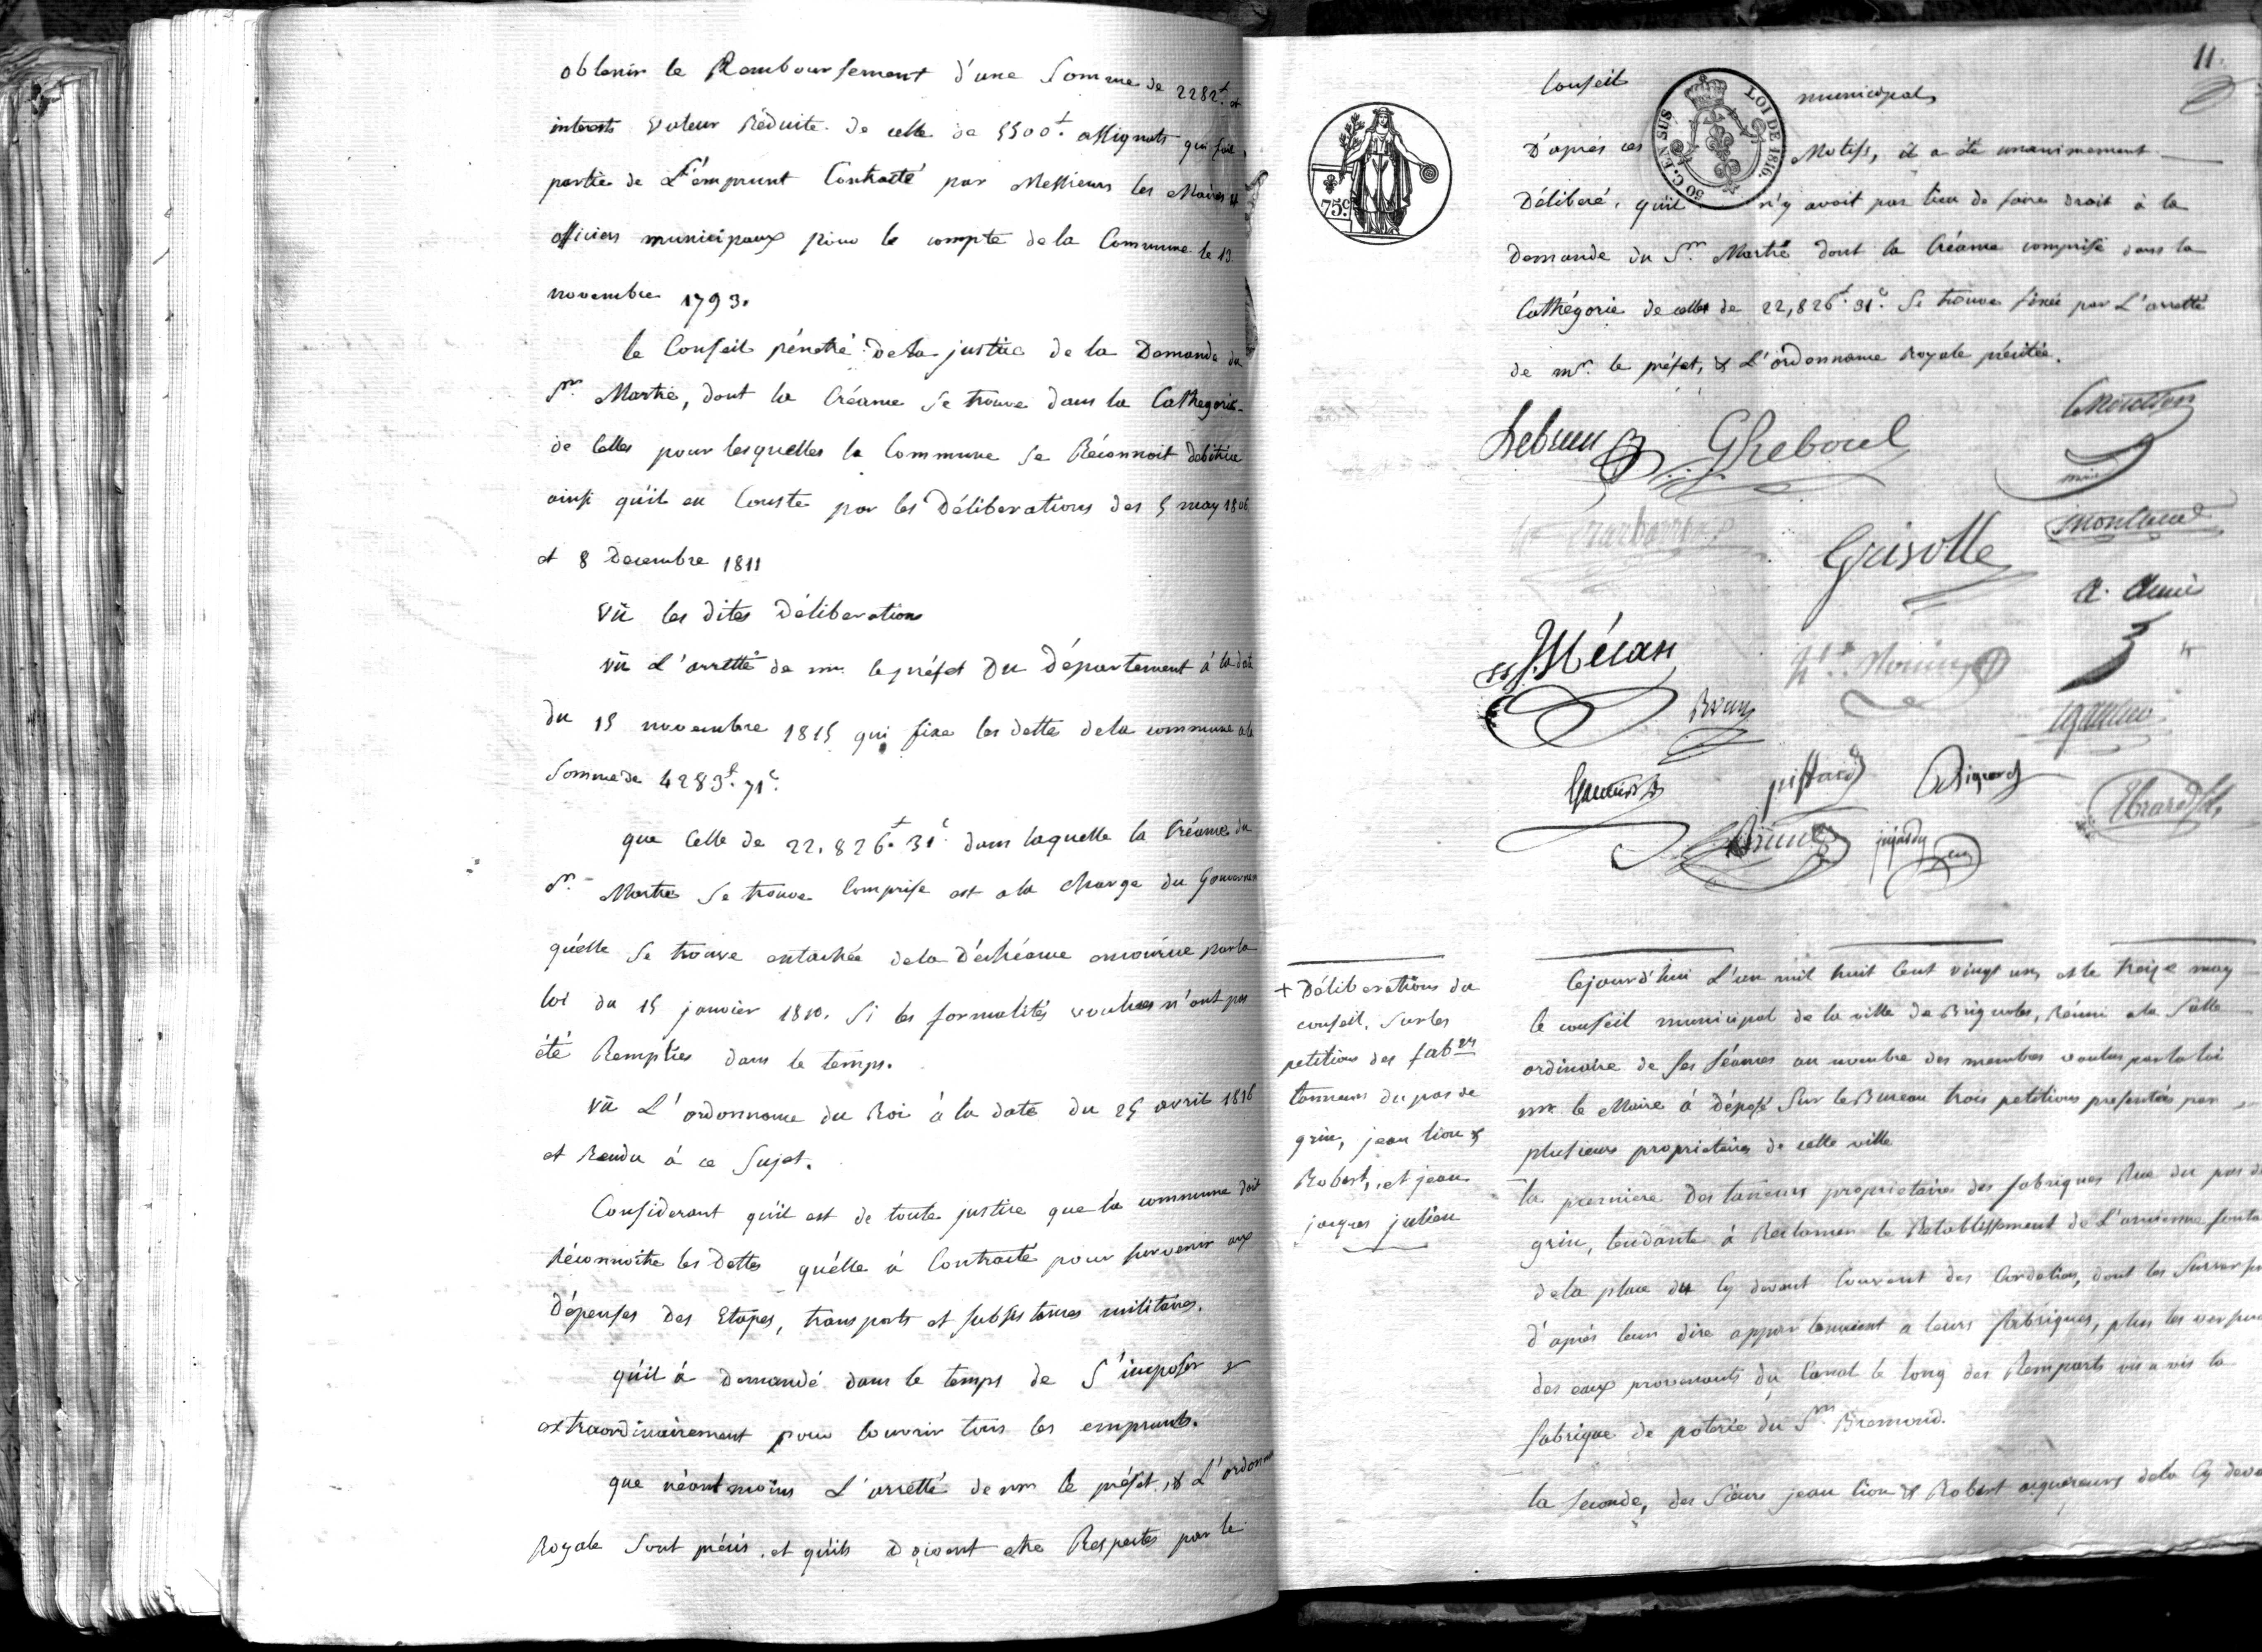 obtenir le Remboursement d'une Somme de 2282.⁺ et
interests valeur Réduite de celle de 5500.⁺ assignats qui fait
partie de L'émprunt Contracté par Messieurs les Maire et
officiers municipaux pour le compte de la Commune le 13
novembre 1793.
le Conseil pénétré de la justice de la Demande du
Sr. Martre, dont la Créance se trouve dans la Cathegorie
de Celles pour lesquelles la Commune se Réconnoit débitrice
ainsi qu'il en Conste par les Déliberations des 5 may 1806
et 8 Decembre 1811
Vû les dites Déliberations
vû L'arretté de mr. le préfet Du Département à la date
du 15 novembre 1815 qui fixe les dettes de la commune à la
Somme de 4283.f 71.c
que Celle de 22,826.f 31.c dans laquelle la Créance du
Sr. Martre se trouve Comprise est a la charge du Gouvernem
qu'elle se trouve entachée de la Déchéance encourue par la
loi du 15 janvier 1810. Si les formalités voulues n'ont pas
été Remplies dans le temps.
vû L'ordonnance du Roi à la date du 25 avril 1816
et Rendu à ce Sujet.
Considerant qu'il est de toute justice que la commune doit
Réconnoitre les Dettes qu'elle à Contracté pour survenir aux
Dépenses Des Etapes, transports et subsistances militaires.
qu'il à Demandé dans le temps de S'imposer
extraordinairement pour Couvrir tous les emprunts.
que néantmoins L'arretté de mr. le préfet, & L'ordonn
Royale sont précis, et qu'ils Doivent etre Respectés par le
11.
Conseil municipal
50 C. EN SUS LOI DE 1816.
75c.
D'après ces Motifs, il a été unanimement
Déliberé, qu'il n'y avoit pas lieu de faire droit à la
Demande du Sr. Martre dont la Créance comprise dans la
Cathégorie de celles de 22,826.f 31.c Se trouve fixée par L'arretté
de mr. le préfet, & L'ordonnance Royale précitée.
Lebrun Greboul
maire
Grisolle
Brun
pissard
+ Déliberations du
conseil, sur les
petitions des fab.ns
tanneurs du pas de
grin, jean lion &
Robert, et jean
jacques julien
Cejourd'hui L'an mil huit Cent vingt un, et le treize may
le conseil municipal de la ville de Brignoles, Réuni a la Salle
ordinaire de ses séances au nombre des membres voulus par la loi
mr. le Maire à déposé Sur le Bureau trois petitions presentées par
plusieurs proprietaires de cette ville
la premiere Des taneurs proprietaires des fabriques Rue du pas de
grin, tendante à Reclamer le Retablissement de L'ancienne fonta
de la place du Cy devant Couvent des Cordeliers, dont les surver
d'après leur dire appartenaient a leurs fabriques, plus les
des eaux provenants du Canal le long des Remparts vis a vis la
fabrique de poterie du Sr. Bremond.
la seconde, des Sieurs jean lion & Robert acquereurs de la Cy deva